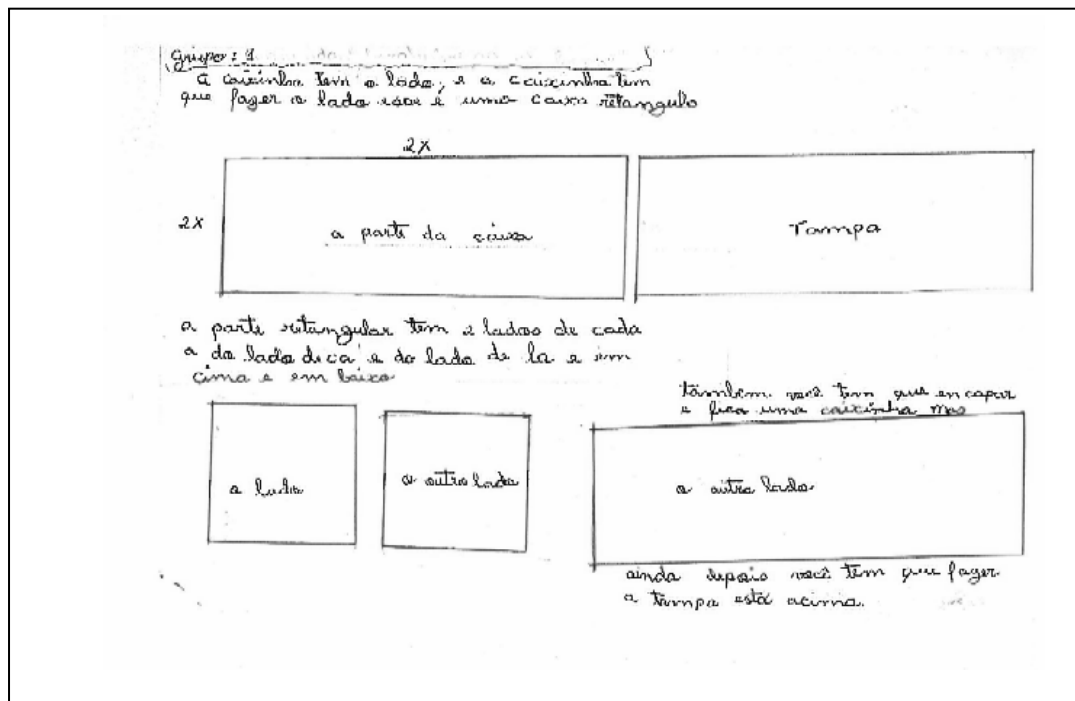 Grupo: 1
a caixinha tem o lado, e a caixinha tem
que fazer o lado esse é uma caixa retangulo
2X
2X
a parte da caixa
Tampa
a parte retangular tem 2 lados de cada
a do lado di ca e do lado de la e em
cima e em baixo
tambem você tem que encapar
e fica uma caixinha mas
o lado
o outro lado
o outro lado
ainda depois você tem que fazer
a tampa está acima.